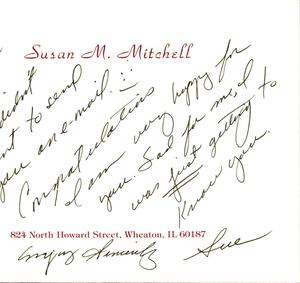 Susan M. Mitchell
didn't
want to send
you an e-mail...
Congratulations
I am very happy for
you. Sad for me, I
was just getting to
know you.
824 North Howard Street, Wheaton, IL 60187
Enjoy Sincerely
Sue